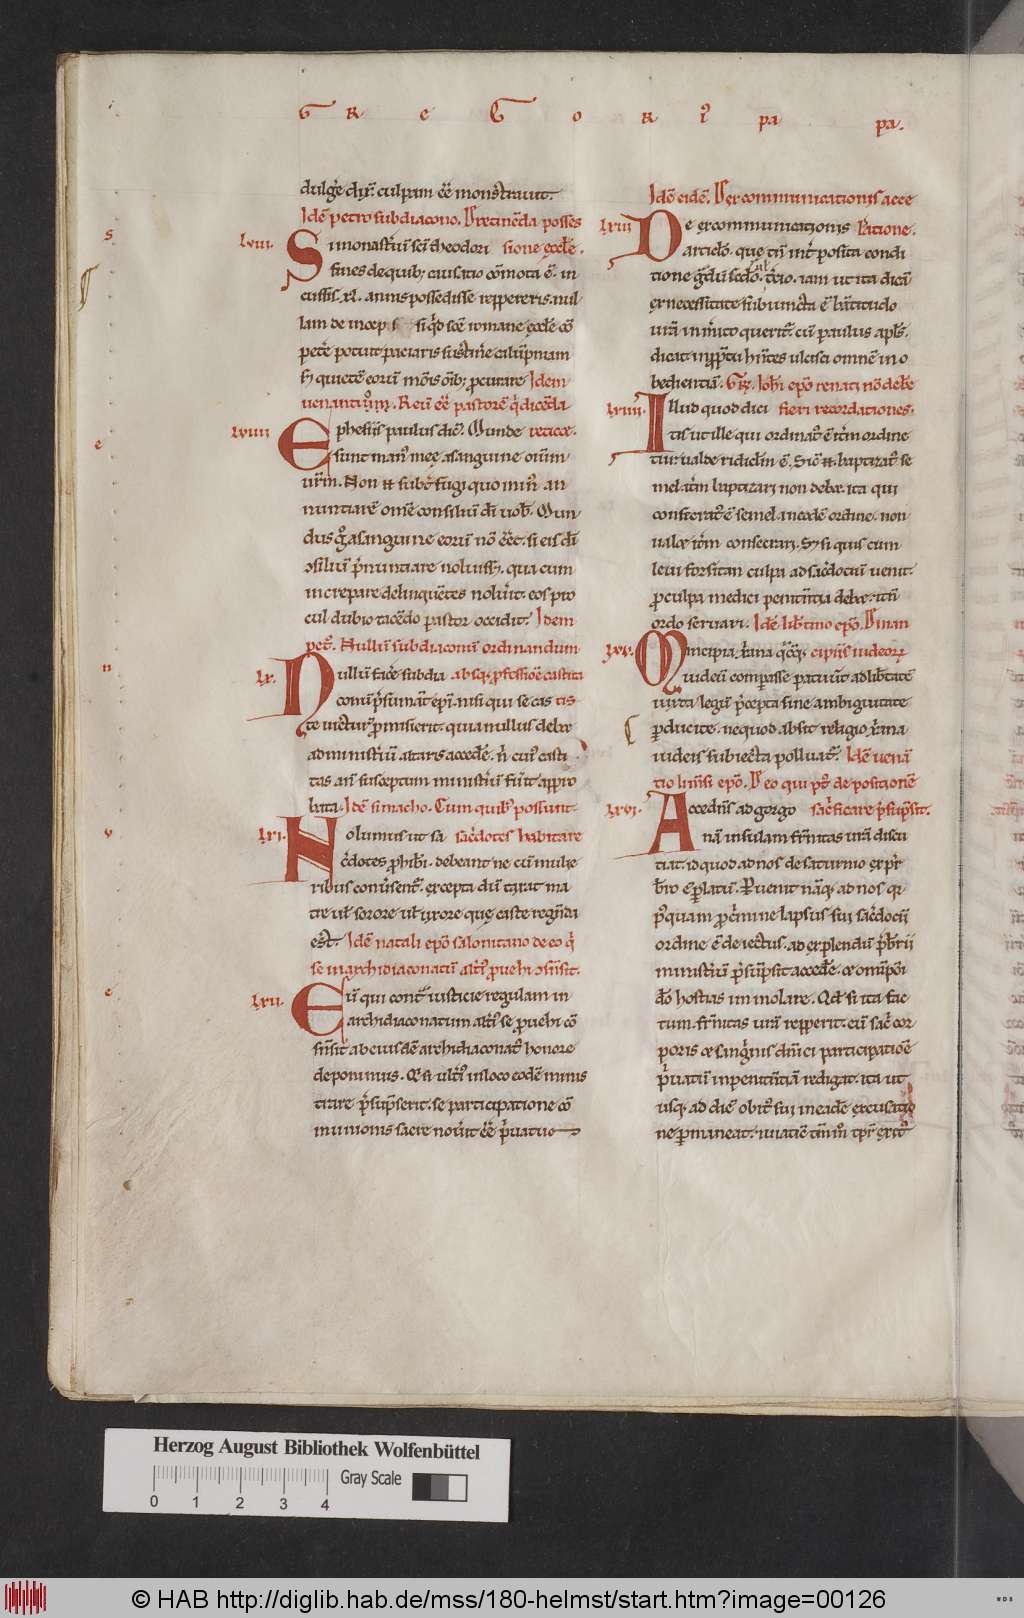 G R e G o R i' pa pa.
dulgen̄dū. culpam eē monstrauit.
Idē petro subdiacono. De retinēda posses
lviii. Si monasteriū sc̄i theodori sione ęcclē.
fines de quib; causatio cōmota ē. in
cussis. xl. annis possedisse reppereris. nul
lam de incep si qd scē romane ęcclē cō
petē potuit patiaris sustinē calūpniam
sꝫ quietē eorū mōis ōib; pcurare Idem
uenantio. Reū eē pastorē q̇ dicēda
lviiii Ephesiis paulus dicit. Munde reticet.
sunt manꝰ meę a sanguine oīum
urm̄. Non n̄ subtfugi quo minꝰ an
nuntiarē omē consiliū dī uob. Mun
dus g̊ a sanguine eorū nō eēt. si eis dī
ɔsiliū p̄nuntiare noluissꝫ. qua cum
increpare delinquētes noluīt. eos pro
cul dubio tacēdo pastor occidit. Idem
petro. Nullū subdiaconū ordinandum
lx. Nullū facē subdia absq; pfessiōe castita
conū p̄sumāt epī. nisi qui se cas tis
te uicturū pmiserit. quia nullus debet
administriū altaris accedē. n̄ cuiꝰ casti
tas an̄ susceptum ministiū fuīt appro
bata. Idē simacho. Cum quibꝰ possunt
lxi. Nolumus ut sa sacdotes habitare
cdotes phibī. debeant ne cū mulie
ribus conuīsent̄. excepta dū taxat ma
tre uł sorore uł uxore quę caste regn̄da
est. Idē natali epo salonitano de eo q̇
se in archidiaconatū altiꝰ puehi ɔsnsit.
lxii. Eū qui cont̄ iusticie regulam in
archidiaconatum altiꝰ se puehi cō
sn̄sit ab eiusdē archidiaconatꝰ honore
deponimus. Qd si ultiꝰ in loco eodē minis
trare p̄sūpserit. se participatione cō
munionis sacre nouīt eē p̄uatū
Idē eidē. De excommunicationis acce
lxiii De excommunicationis ratione.
articlo. quę tn̄ int̄ posita condi
tione ḡdū sedō. uł tcio. iam ut ita dicā
ex necessitate subiuncta ē. beatitudo
urā inmīto querit̄. cū paulus apls.
dicat in pptu hn̄tes ulcisci omnē ino
bedientiā. Gg̃. Iohī epo renati nō debē
lxiiii. Illud quod dici fieri reordationes.
tis ut ille qui ordinatꝰ ē itm̄ ordine
tur. ualde ridiclm̄ ē. Sic̄ n̄. baptizatꝰ se
mel. itm̄ baptizari non debet. ita qui
consecratꝰ ē semel. in eodē ordine. non
ualet itm̄ consecrari. Sꝫ si quis cum
leui forsitan culpa ad sacdociū uenit.
p culpa medici penitn̄tia debet. itn̄
ordo seruari. Idē libtino epo. Si man
lxv. Mancipia xr̄ana q̇cq; cipiis iudeor̄
iudeū comparasse patuīt ad libtatē
iuxta legū p̄cepta sine ambiguitate
pducite. ne quod absit religio xr̄ana
iudeis subiecta polluat̄. Idē uenā
tio lunēsi epo. De eo qui p̊ depositionē
lxvi. Accedens ad gorgo sacficare p̄sūpsit.
nā insulam frn̄itas urā discu
tiat. id quod ad nos de saturnio ex pr̄
bro ē platū. Puenit nāq; ad nos q̄
pꝰquam p crimine lapsus sui sacdocii
ordine ē deiectus. ad explendū prb̄rii
ministiū p̄sūpsit accedē. et omīpoī
dō hostias immolare. Qd si ita fac
tum. frn̄itas urā repperit. eū sac̄ cor
poris et sanḡnis dn̄ici participatiōe
p̄uatū in penitn̄tiā redigat. ita ut
usq; ad diē obitꝰ sui in eadē excusatio
ne pmaneat. uiaticū tm̄m tpr̄ exitꝰ
s
e
n
v
e
Herzog August Bibliothek Wolfenbüttel
Gray Scale
0 1 2 3 4
© HAB http://diglib.hab.de/mss/180-helmst/start.htm?image=00126